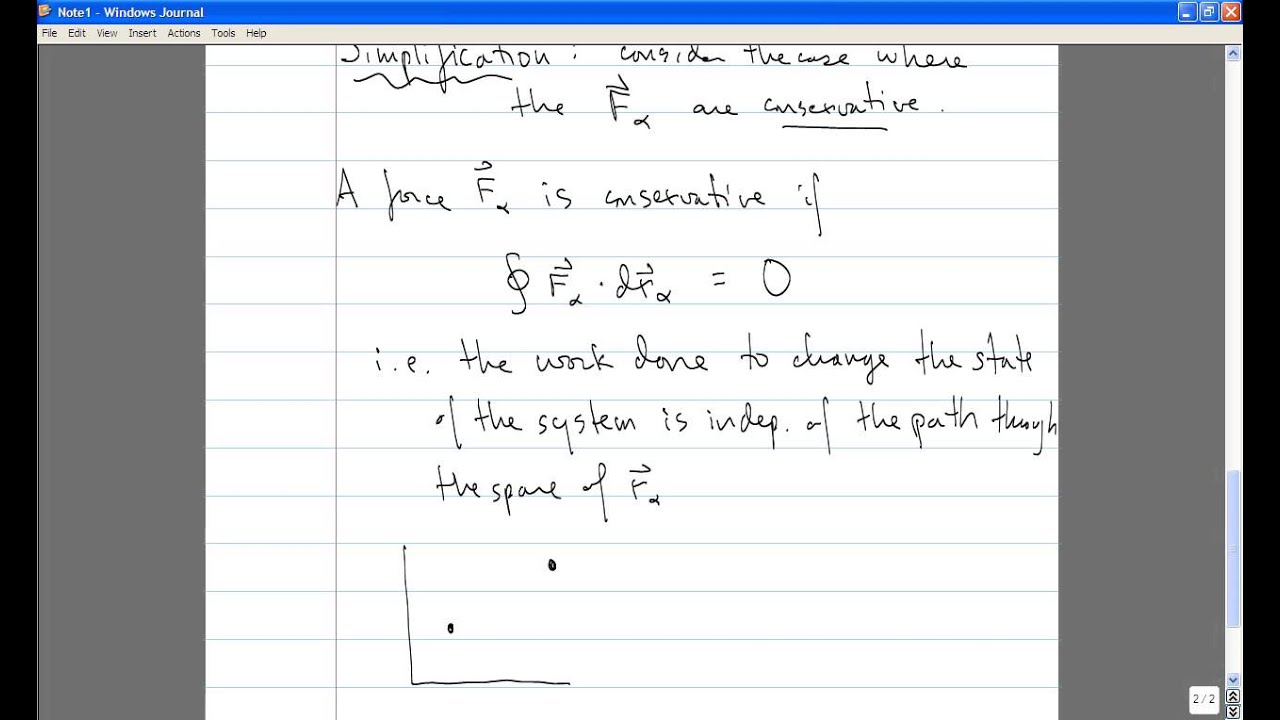 Note1 - Windows Journal
File Edit View Insert Actions Tools Help
Simplification : consider the case where
the F⃗α are conservative.
A force F⃗α is conservative if
∮ F⃗α · dr⃗α = 0
i.e. the work done to change the state
of the system is indep. of the path though
the space of r⃗α
2 / 2